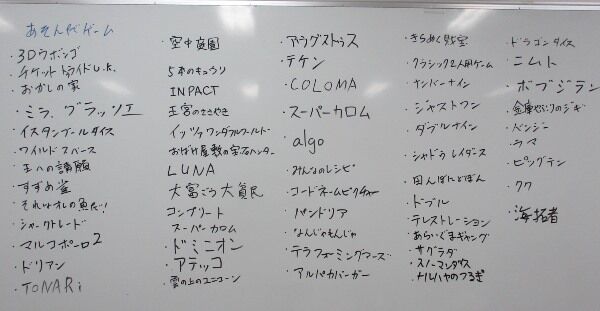 あそんだゲーム
・3Dウボンゴ
・チケットトゥライドU.K.
・おかしの家
・ミラ、グラッツィエ
・イスタンブールダイス
・ワイルドスペース
・王への請願
・すずめ雀
・それはオレの魚だ!
・シャークトレード
・マルコポーロ2
・ドリアン
・TONARi
・空中庭園
・5本のキュウリ
・INPACT
・王宮のささやき
・イッツアワンダフルワールド
・おばけ屋敷の宝石ハンター
・LUNA
・大富ごう大貧民
・コンプリート
・スーパーカロム
・ドミニオン
・アテッコ
・雲の上のユニコーン
・アウグストゥス
・テケン
・COLOMA
・スーパーカロム
・algo
・みんなのレシピ
・コードネームピクチャー
・パンドリア
・なんじゃもんじゃ
・テラフォーミングマーズ
・アルパカパーガー
・きらめく財宝
・クラシックな2人用ゲーム
・ナンバーナイン
・ジャストワン
・ダブルナイン
・シャドウレイダース
・因んばにとぼん
・ドブル
・テレストレーション
・あらいぐまギャング
・サグラダ
・スノーマンダイス
・メルハヤのつるぎ
・ドラゴンダイス
・ニムト
・ボブジテン
・金庫やぶりのジギ
・ベンジー
・ウマ
・ピッグテン
・クク
・海拓者